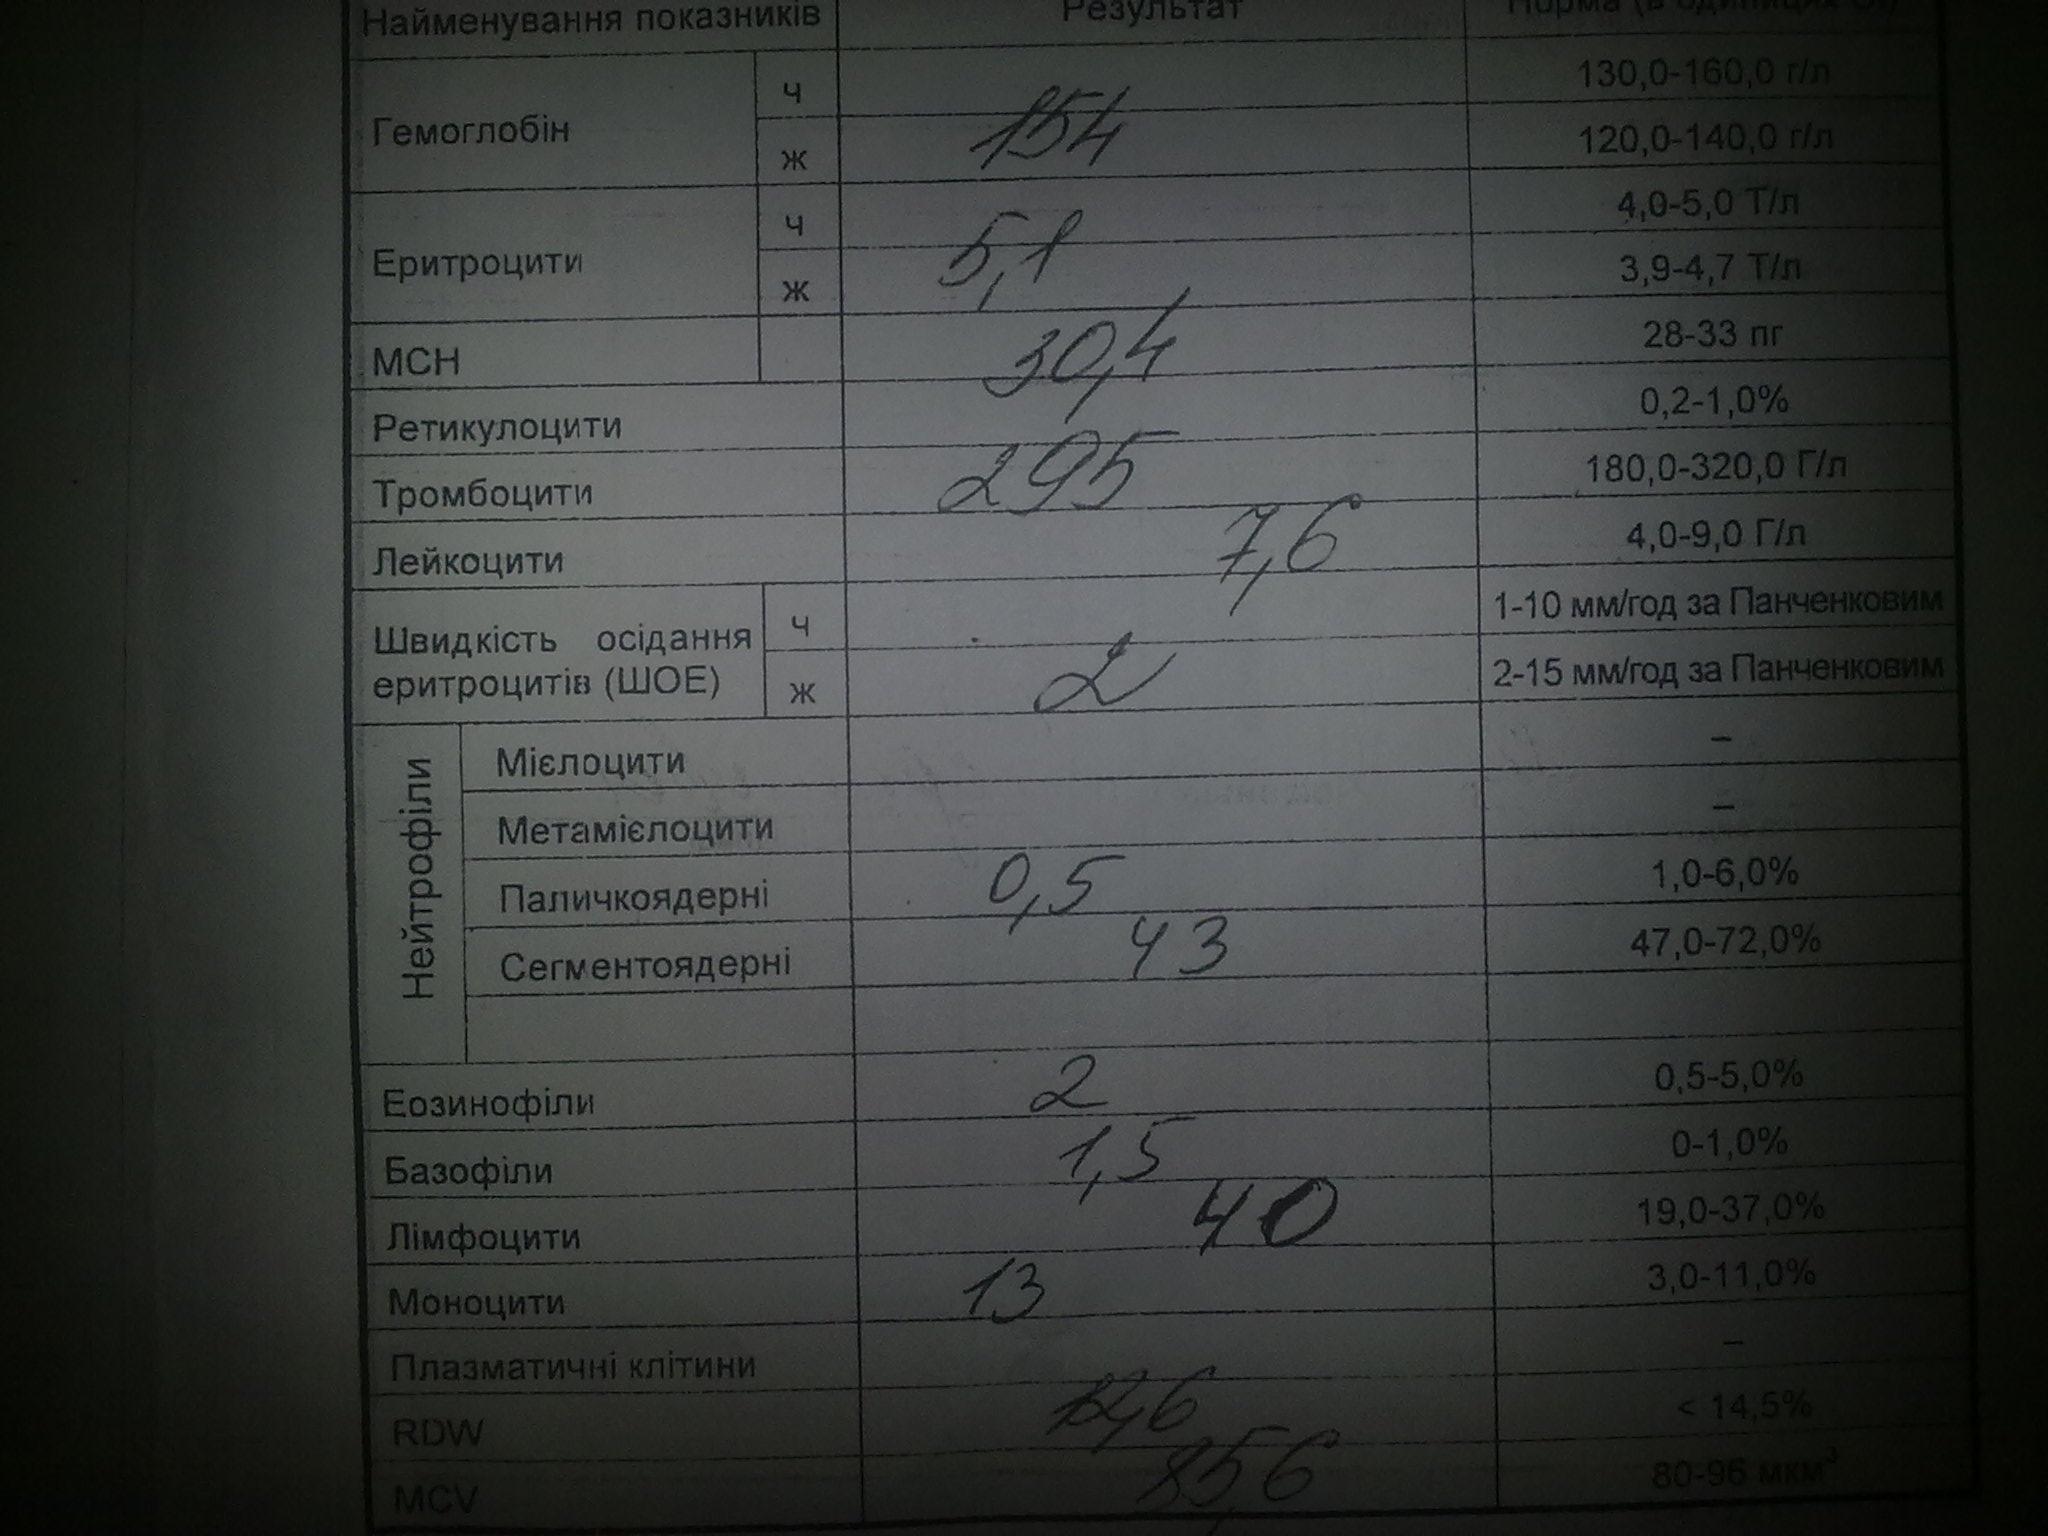 Найменування показників Результат Норма (в одиницях СІ)
Гемоглобін ч 154 130,0-160,0 г/л
ж 120,0-140,0 г/л
Еритроцити ч 5,1 4,0-5,0 Т/л
ж 3,9-4,7 Т/л
МСН 30,4 28-33 пг
Ретикулоцити 0,2-1,0%
Тромбоцити 295 180,0-320,0 Г/л
Лейкоцити 7,6 4,0-9,0 Г/л
Швидкість осідання ч 1-10 мм/год за Панченковим
еритроцитів (ШОЕ) ж 2 2-15 мм/год за Панченковим
Нейтрофіли
Мієлоцити –
Метамієлоцити –
Паличкоядерні 0,5 1,0-6,0%
Сегментоядерні 43 47,0-72,0%
Еозинофіли 2 0,5-5,0%
Базофіли 1,5 0-1,0%
Лімфоцити 40 19,0-37,0%
Моноцити 13 3,0-11,0%
Плазматичні клітини –
RDW 12,6 < 14,5%
MCV 85,6 80-96 мкм³